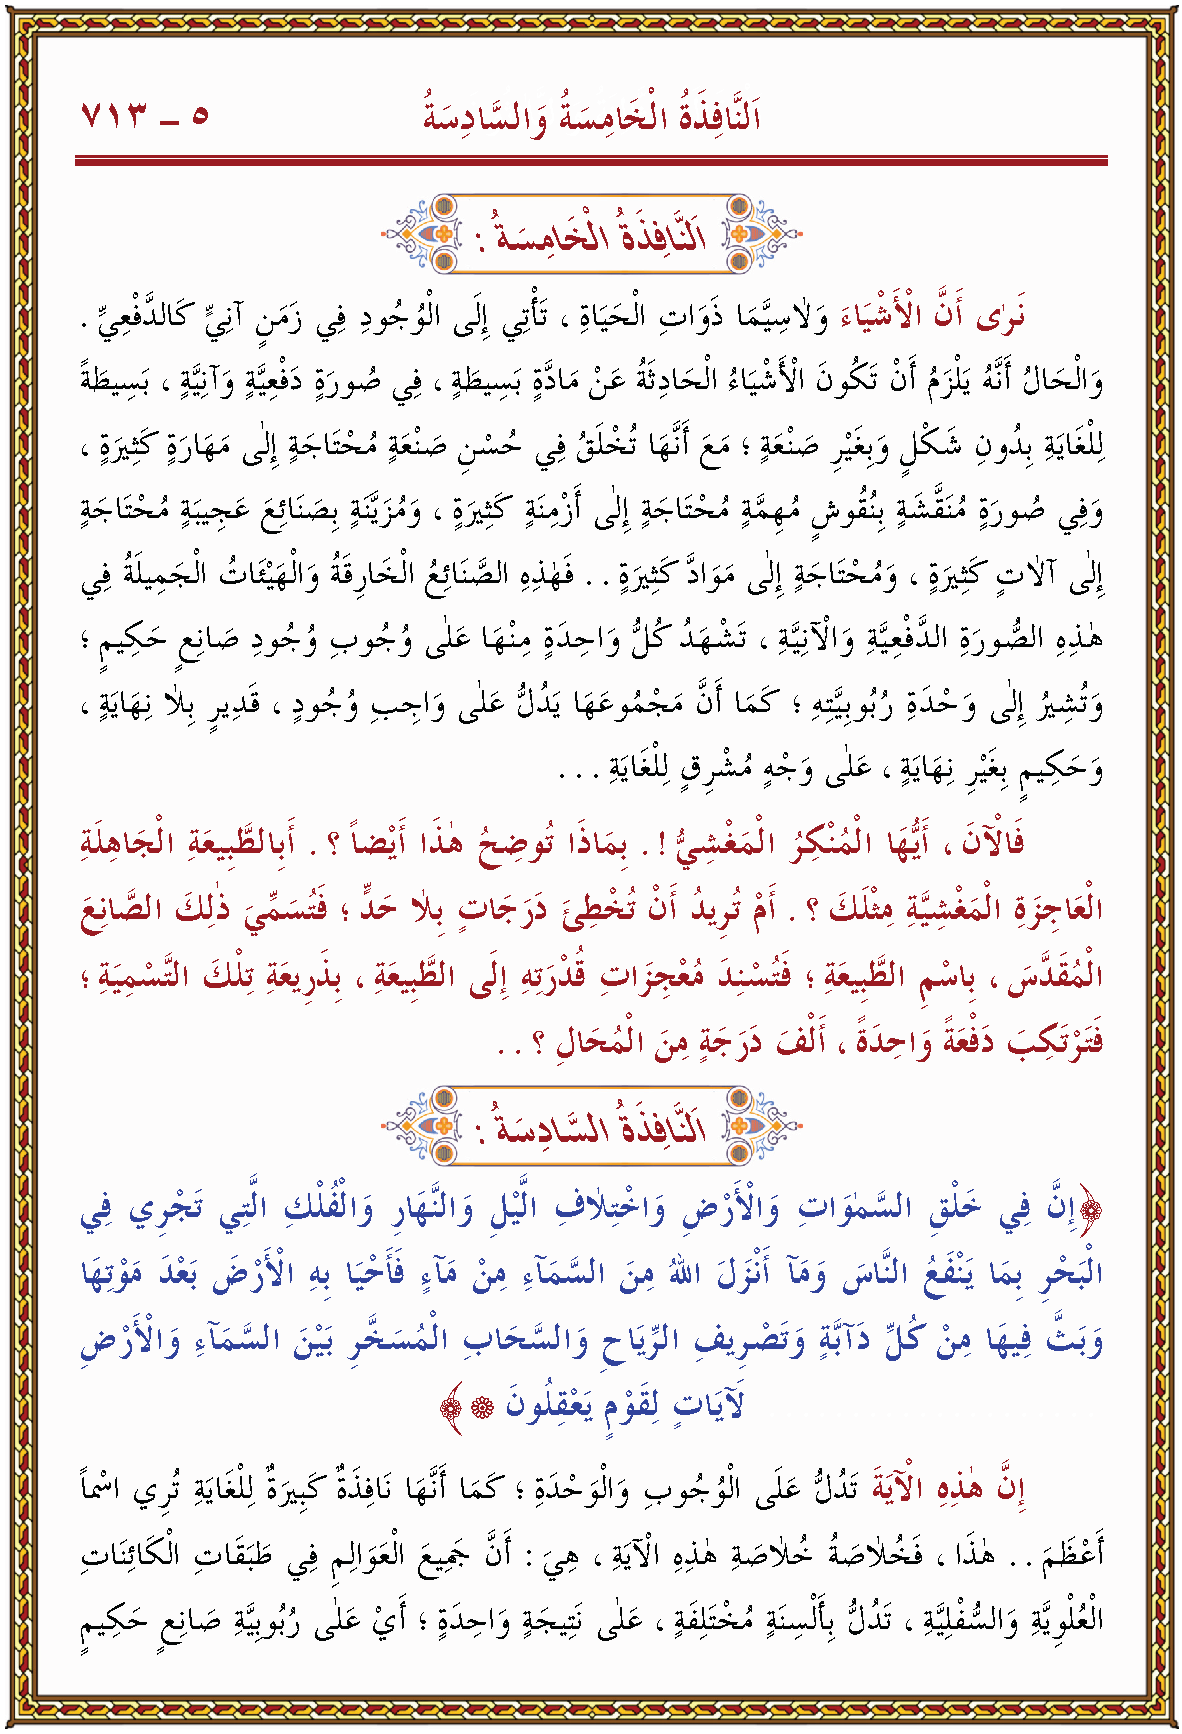 اَلنَّافِذَةُ الْخَامِسَةُ وَالسَّادِسَةُ ٥ ـ ٧١٣
اَلنَّافِذَةُ الْخَامِسَةُ :
نَرٰى أَنَّ الْأَشْيَاءَ وَلَاسِيَّمَا ذَوَاتِ الْحَيَاةِ ، تَأْتِي إِلَى الْوُجُودِ فِي زَمَنٍ آنِيٍّ كَالدَّفْعِيِّ .
وَالْحَالُ أَنَّهُ يَلْزَمُ أَنْ تَكُونَ الْأَشْيَاءُ الْحَادِثَةُ عَنْ مَادَّةٍ بَسِيطَةٍ ، فِي صُورَةٍ دَفْعِيَّةٍ وَآنِيَّةٍ ، بَسِيطَةً
لِلْغَايَةِ بِدُونِ شَكْلٍ وَبِغَيْرِ صَنْعَةٍ ؛ مَعَ أَنَّهَا تُخْلَقُ فِي حُسْنِ صَنْعَةٍ مُحْتَاجَةٍ إِلٰى مَهَارَةٍ كَثِيرَةٍ ،
وَفِي صُورَةٍ مُنَقَّشَةٍ بِنُقُوشٍ مُهِمَّةٍ مُحْتَاجَةٍ إِلٰى أَزْمِنَةٍ كَثِيرَةٍ ، وَمُزَيَّنَةٍ بِصَنَائِعَ عَجِيبَةٍ مُحْتَاجَةٍ
إِلٰى آلَاتٍ كَثِيرَةٍ ، وَمُحْتَاجَةٍ إِلٰى مَوَادَّ كَثِيرَةٍ . . فَهٰذِهِ الصَّنَائِعُ الْخَارِقَةُ وَالْهَيْئَاتُ الْجَمِيلَةُ فِي
هٰذِهِ الصُّورَةِ الدَّفْعِيَّةِ وَالْآنِيَّةِ ، تَشْهَدُ كُلُّ وَاحِدَةٍ مِنْهَا عَلٰى وُجُوبِ وُجُودِ صَانِعٍ حَكِيمٍ ؛
وَتُشِيرُ إِلٰى وَحْدَةِ رُبُوبِيَّتِهِ ؛ كَمَا أَنَّ مَجْمُوعَهَا يَدُلُّ عَلٰى وَاجِبِ وُجُودٍ ، قَدِيرٍ بِلَا نِهَايَةٍ ،
وَحَكِيمٍ بِغَيْرِ نِهَايَةٍ ، عَلٰى وَجْهٍ مُشْرِقٍ لِلْغَايَةِ . . .
فَالْآنَ ، أَيُّهَا الْمُنْكِرُ الْمَغْشِيُّ ! . بِمَاذَا تُوضِحُ هٰذَا أَيْضاً ؟ . أَبِالطَّبِيعَةِ الْجَاهِلَةِ
الْعَاجِزَةِ الْمَغْشِيَّةِ مِثْلَكَ ؟ . أَمْ تُرِيدُ أَنْ تُخْطِئَ دَرَجَاتٍ بِلَا حَدٍّ ؛ فَتُسَمِّيَ ذٰلِكَ الصَّانِعَ
الْمُقَدَّسَ ، بِاسْمِ الطَّبِيعَةِ ؛ فَتُسْنِدَ مُعْجِزَاتِ قُدْرَتِهِ إِلَى الطَّبِيعَةِ ، بِذَرِيعَةِ تِلْكَ التَّسْمِيَةِ ؛
فَتَرْتَكِبَ دَفْعَةً وَاحِدَةً ، أَلْفَ دَرَجَةٍ مِنَ الْمُحَالِ ؟ . .
اَلنَّافِذَةُ السَّادِسَةُ :
﴿إِنَّ فِي خَلْقِ السَّمٰوَاتِ وَالْأَرْضِ وَاخْتِلَافِ الَّيْلِ وَالنَّهَارِ وَالْفُلْكِ الَّتِي تَجْرِي فِي
الْبَحْرِ بِمَا يَنْفَعُ النَّاسَ وَمَآ أَنْزَلَ اللهُ مِنَ السَّمَآءِ مِنْ مَآءٍ فَأَحْيَا بِهِ الْأَرْضَ بَعْدَ مَوْتِهَا
وَبَثَّ فِيهَا مِنْ كُلِّ دَآبَّةٍ وَتَصْرِيفِ الرِّيَاحِ وَالسَّحَابِ الْمُسَخَّرِ بَيْنَ السَّمَآءِ وَالْأَرْضِ
لَآيَاتٍ لِقَوْمٍ يَعْقِلُونَ ۞﴾
إِنَّ هٰذِهِ الْآيَةَ تَدُلُّ عَلَى الْوُجُوبِ وَالْوَحْدَةِ ؛ كَمَا أَنَّهَا نَافِذَةٌ كَبِيرَةٌ لِلْغَايَةِ تُرِي اسْماً
أَعْظَمَ . . هٰذَا ، فَخُلَاصَةُ خُلَاصَةِ هٰذِهِ الْآيَةِ ، هِيَ : أَنَّ جَمِيعَ الْعَوَالِمِ فِي طَبَقَاتِ الْكَائِنَاتِ
الْعُلْوِيَّةِ وَالسُّفْلِيَّةِ ، تَدُلُّ بِأَلْسِنَةٍ مُخْتَلِفَةٍ ، عَلٰى نَتِيجَةٍ وَاحِدَةٍ ؛ أَيْ عَلٰى رُبُوبِيَّةِ صَانِعٍ حَكِيمٍ